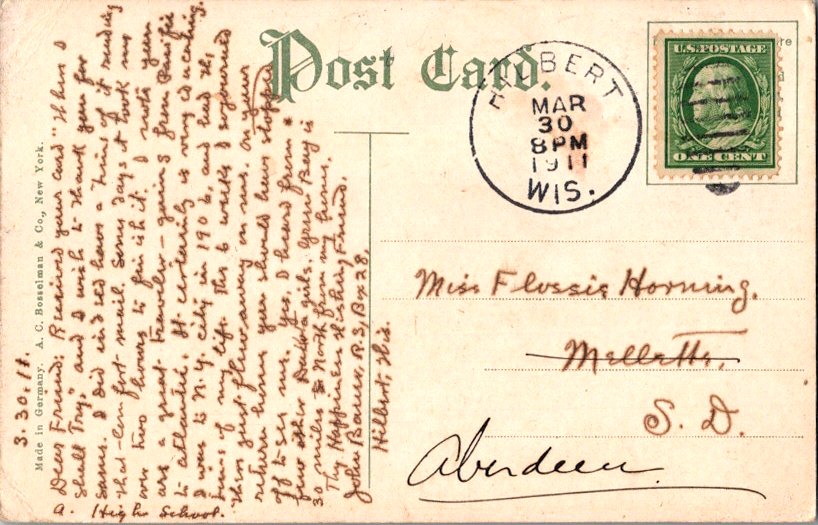 Post Card.
HILBERT
MAR
30
8 PM
1911
WIS.
U.S. POSTAGE
ONE CENT
Miss Flossie Horning.
Mellette,
S. D.
Aberdeen.
Made in Germany. A. C. Bosselman & Co., New York.
3.30.11.
Dear Friend: Received your card "When I
shall Try," and I wish to thank you for
same. I did indeed have a time of it reading
that comfort mail. Some days it took me
over two hours to finish it. I note you
are a great traveler - going from Pacific
to Atlantic. It certainly is very educating.
I was to N.Y. city in 1906, and had the
time of my life the 6 weeks I sojourned
thus just flew away on me. On your
return home you should have stopped
off to see me. Yes, I heard from a
few other Dakota girls. Green Bay is
30 miles North from my home.
Thy Happiness Wishing Friend.
John Bauer, R.3, Box 28,
Hilbert, Wis.
a. High School.